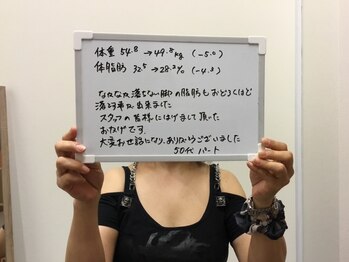 体重 54.8 → 49.8kg (-5.0)
体脂肪 32.5 → 28.2% (-4.3)
なかなか落ちない脚の脂肪もおどろくほど
落とす事が出来ました
スタッフの皆様にはげまして頂いた
おかげです。
大変お世話になり、ありがとうございました
50代 パート